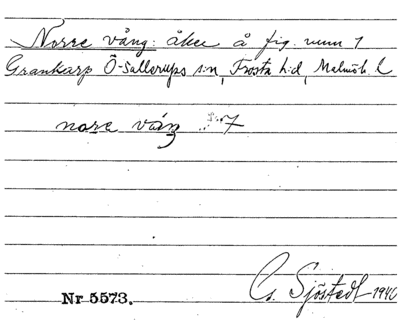 Norre vång: åker å fig. num 1
Grankarp Ö-Sallerups s:n, Frosta h:d, Malmöh. l
nore vång 7
G. Sjöstedt 1946
Nr 5573.